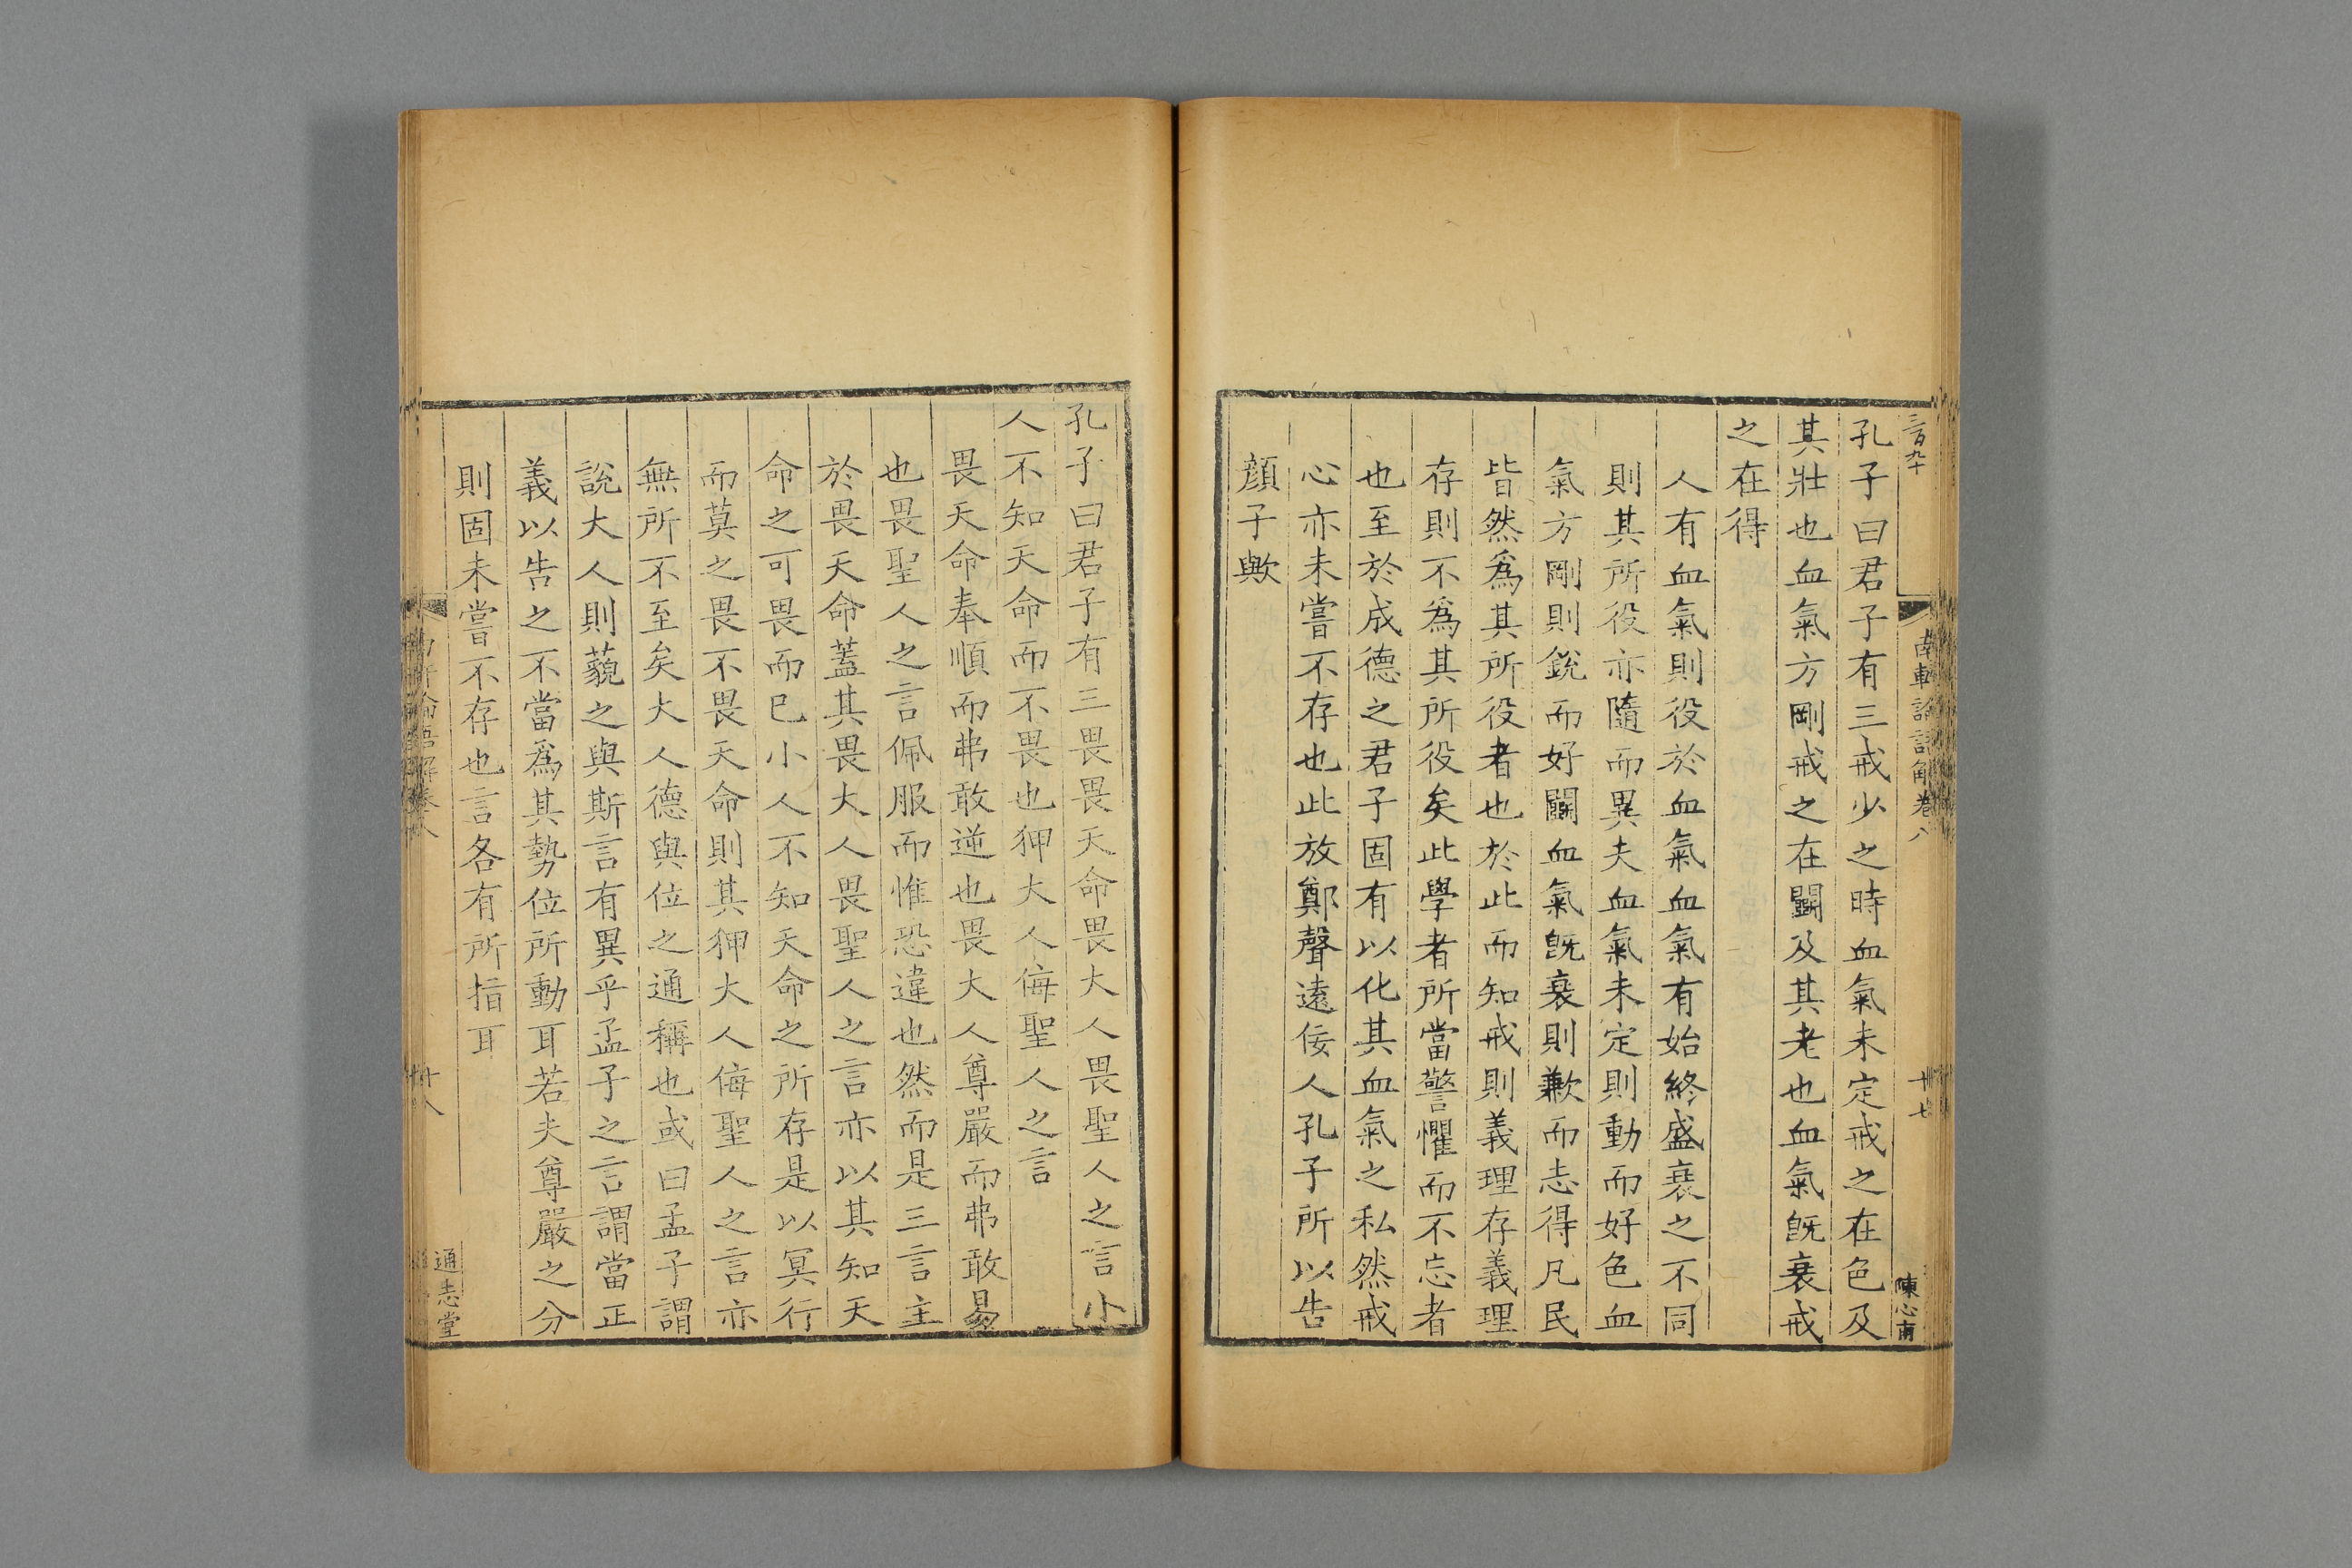 三百九十
南軒論語解卷八
廿七
陳心甫
孔子曰君子有三戒少之時血氣未定戒之在色及
其壯也血氣方剛戒之在鬬及其老也血氣旣衰戒
之在得
人有血氣則役於血氣血氣有始終盛衰之不同
則其所役亦隨而異夫血氣未定則動而好色血
氣方剛則銳而好鬬血氣旣衰則歉而志得凡民
皆然爲其所役者也於此而知戒則義理存義理
存則不爲其所役矣此學者所當警懼而不忘者
也至於成德之君子固有以化其血氣之私然戒
心亦未嘗不存也此放鄭聲遠佞人孔子所以告
顔子歟
孔子曰君子有三畏畏天命畏大人畏聖人之言小
人不知天命而不畏也狎大人侮聖人之言
畏天命奉順而弗敢逆也畏大人尊嚴而弗敢易
也畏聖人之言佩服而惟恐違也然而是三言主
於畏天命蓋其畏大人畏聖人之言亦以其知天
命之可畏而已小人不知天命之所存是以冥行
而莫之畏不畏天命則其狎大人侮聖人之言亦
無所不至矣大人德與位之通稱也或曰孟子謂
說大人則藐之與斯言有異乎孟子之言謂當正
義以告之不當爲其勢位所動耳若夫尊嚴之分
則固未嘗不存也言各有所指耳
南軒論語解卷八
廿八
通志堂